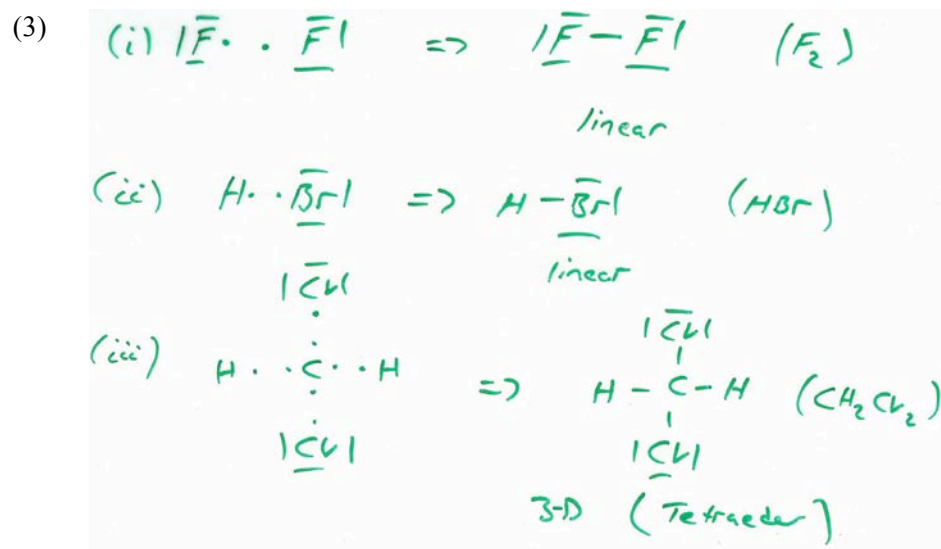 (3)
(i) |F· · F| => |F – F| (F₂)
linear
(ii) H· ·Br| => H – Br| (HBr)
linear
(iii)
|Cl|
H· ·C· ·H
|Cl|
=>
|Cl|
H – C – H (CH₂Cl₂)
|Cl|
3-D (Tetraeder)